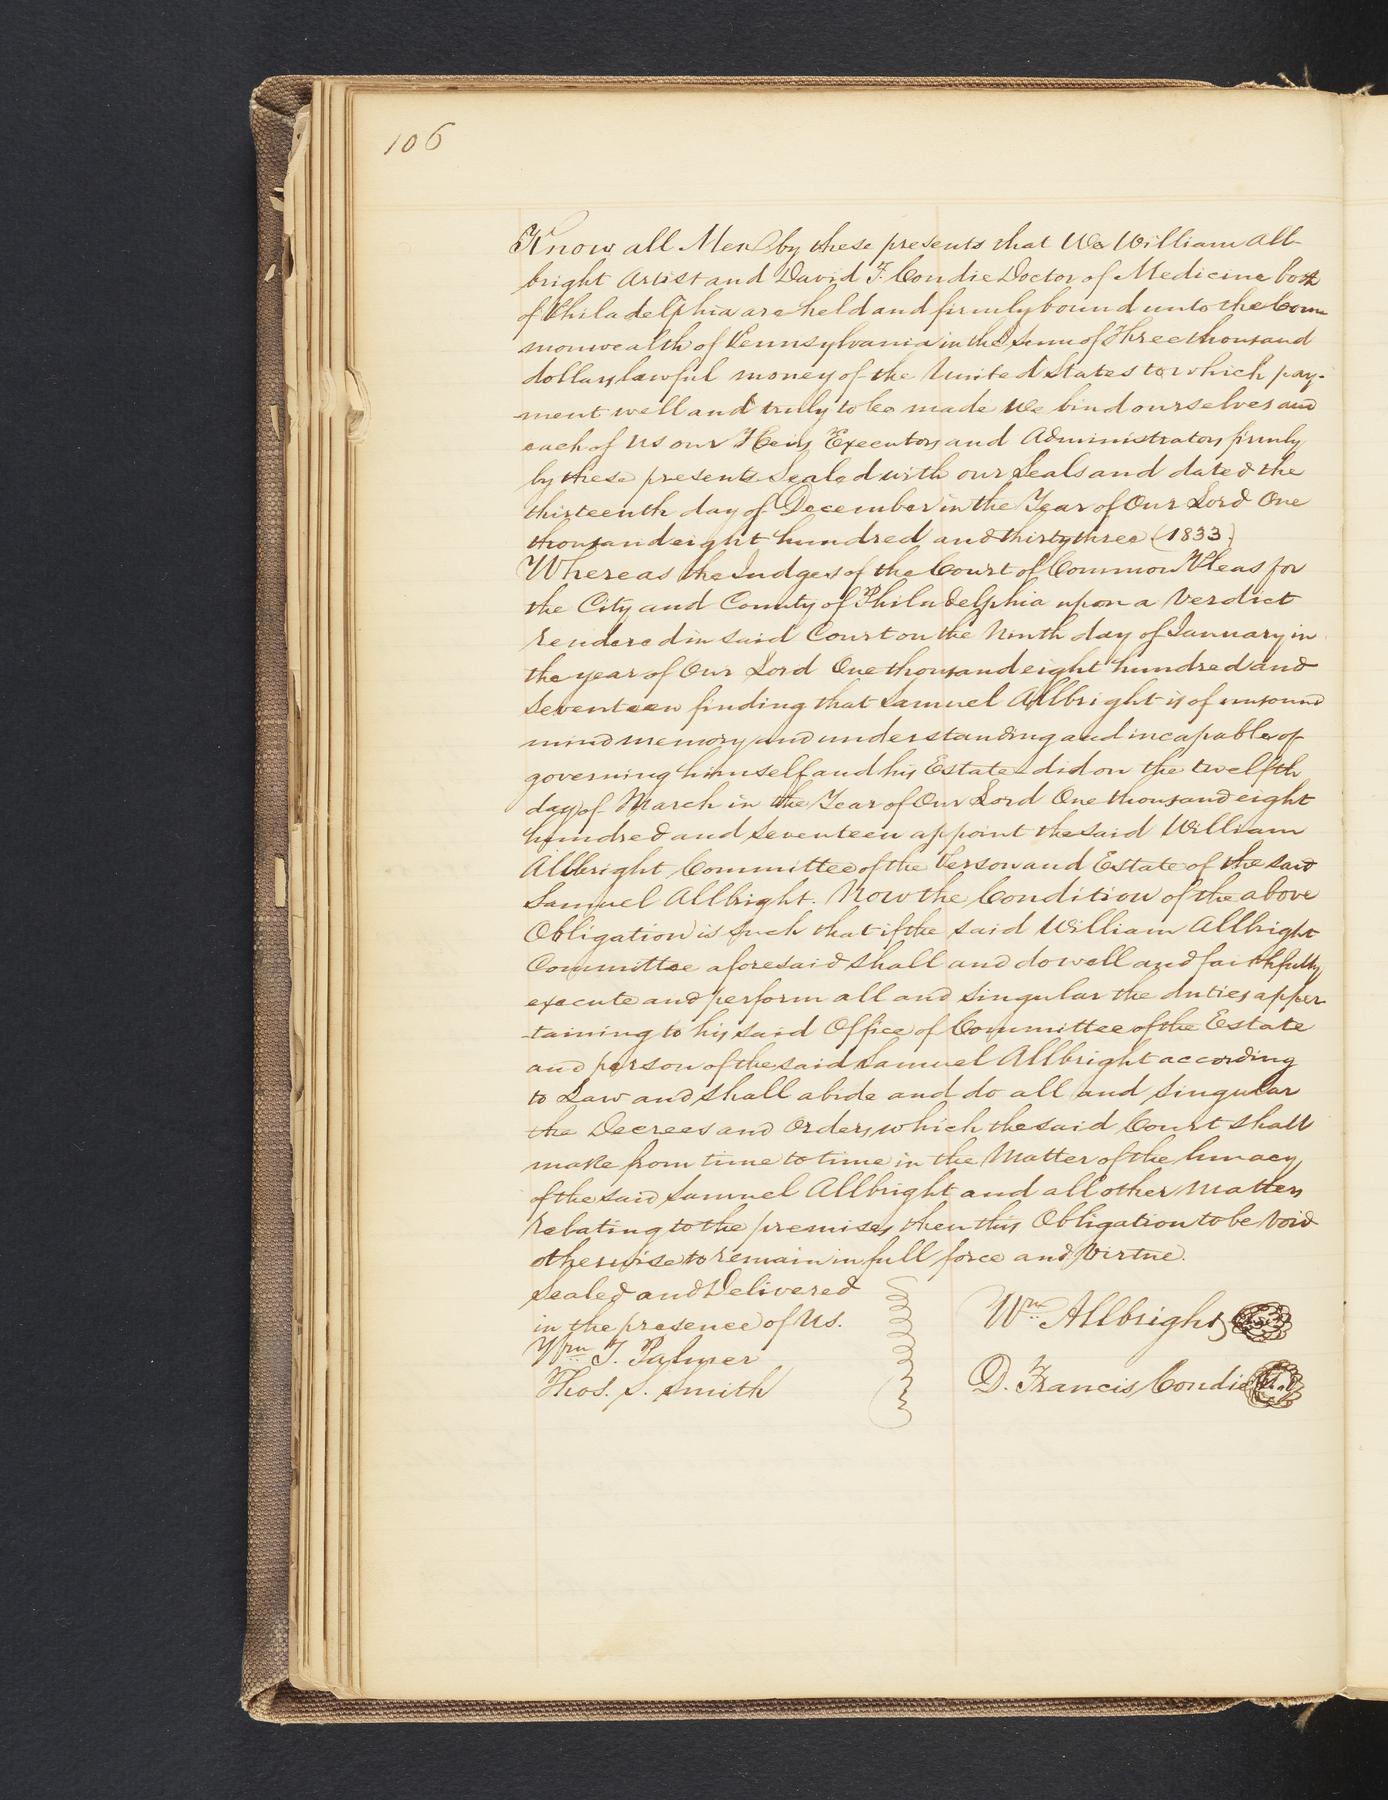 106
Know all Men by these presents that We William All-
bright Artist and David F. Condie Doctor of Medicine both
of Philadelphia are held and firmly bound unto the Com
monwealth of Pennsylvania in the Sum of Three thousand
dollars lawful money of the United States to which pay-
ment well and truly to be made We bind ourselves and
each of us our Heirs Executors and Administrators firmly
by these presents Sealed with our Seals and dated the
thirteenth day of December in the Year of Our Lord One
thousand eight hundred and thirty three (1833)
Whereas the Judges of the Court of Common Pleas for
the City and County of Philadelphia upon a Verdict
rendered in said Court on the Ninth day of January in
the year of Our Lord One thousand eight hundred and
Seventeen finding that Samuel Allbright is of unsound
mind memory and understanding and incapable of
governing himself and his Estate did on the twelfth
day of March in the Year of Our Lord One thousand eight
hundred and Seventeen appoint the said William
Allbright Committee of the Person and Estate of the said
Samuel Allbright. Now the Condition of the above
Obligation is Such that if the said William Allbright
Committee aforesaid shall and do well and faithfully
execute and perform all and Singular the duties apper
-taining to his said Office of Committee of the Estate
and person of the said Samuel Allbright according
to Law and shall abide and do all and Singular
the Decrees and Orders which the said Court shall
make from time to time in the Matter of the lunacy
of the said Samuel Allbright and all other Matters
relating to the premises then this Obligation to be Void
otherwise to remain in full force and Virtue.
Sealed and Delivered
in the presence of Us.
Wm T. Palmer
Thos. S. Smith
Wm Allbright Seal
D. Francis Condie Seal